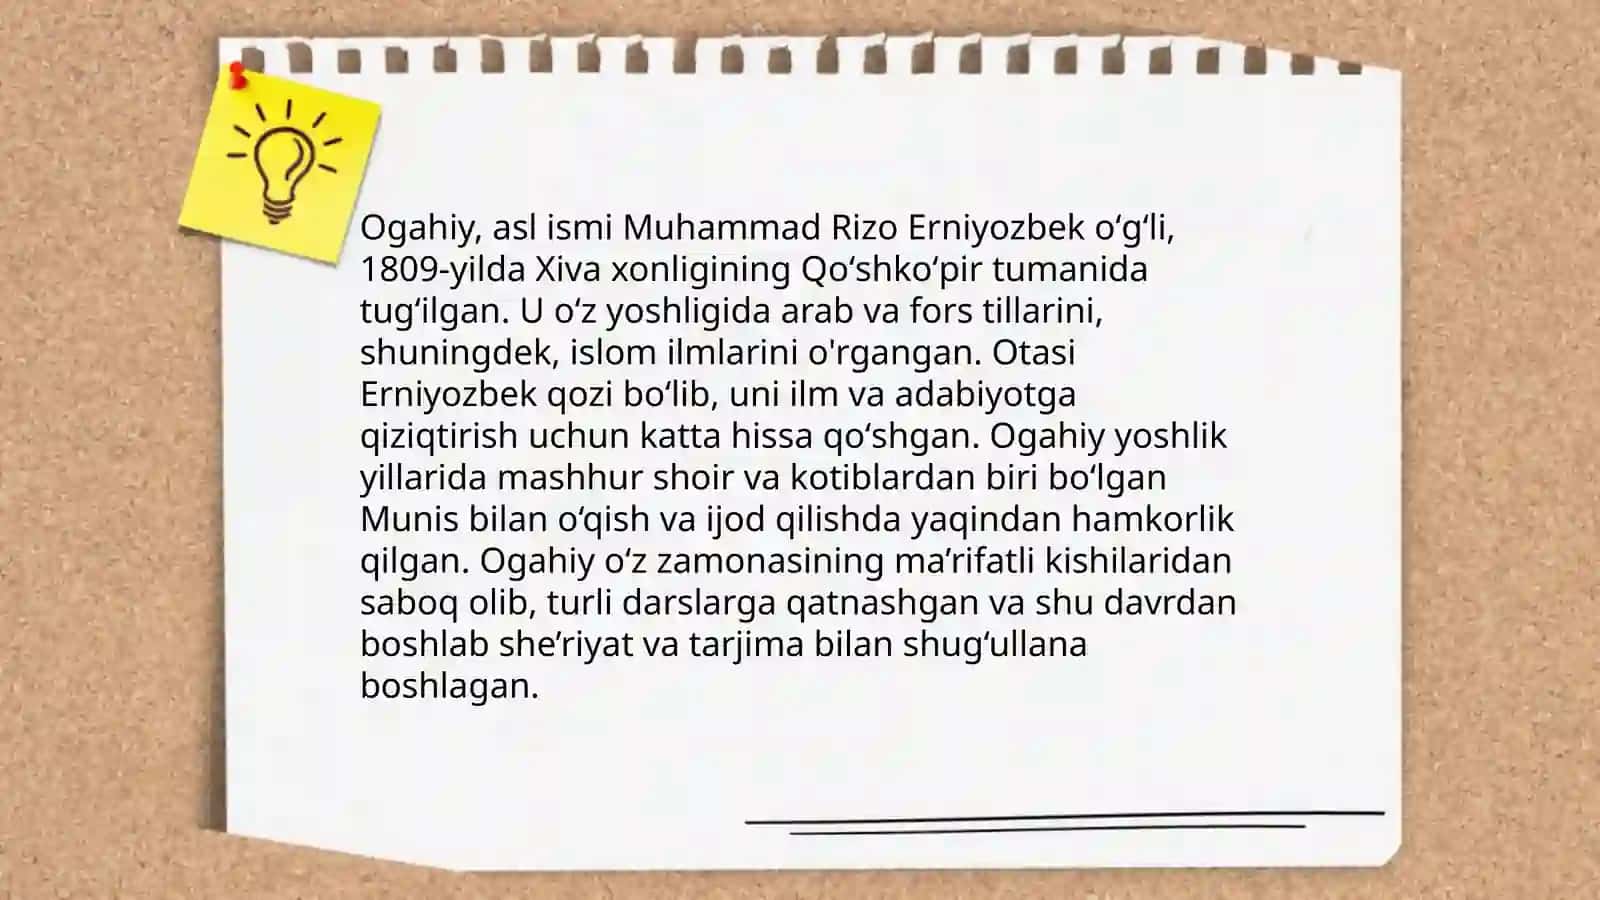 Ogahiy, asl ismi Muhammad Rizo Erniyozbek o‘g‘li,
1809-yilda Xiva xonligining Qo‘shko‘pir tumanida
tug‘ilgan. U o‘z yoshligida arab va fors tillarini,
shuningdek, islom ilmlarini o'rgangan. Otasi
Erniyozbek qozi bo‘lib, uni ilm va adabiyotga
qiziqtirish uchun katta hissa qo‘shgan. Ogahiy yoshlik
yillarida mashhur shoir va kotiblardan biri bo‘lgan
Munis bilan o‘qish va ijod qilishda yaqindan hamkorlik
qilgan. Ogahiy o‘z zamonasining ma’rifatli kishilaridan
saboq olib, turli darslarga qatnashgan va shu davrdan
boshlab she’riyat va tarjima bilan shug‘ullana
boshlagan.